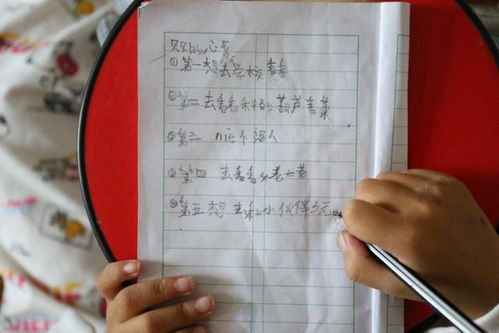 贝贝的心愿
①第一想去学校看看
②第二去看看我种的葫芦青菜
③第三 nie个泥人
④第四 去看看
⑤第五想去和小伙伴多玩